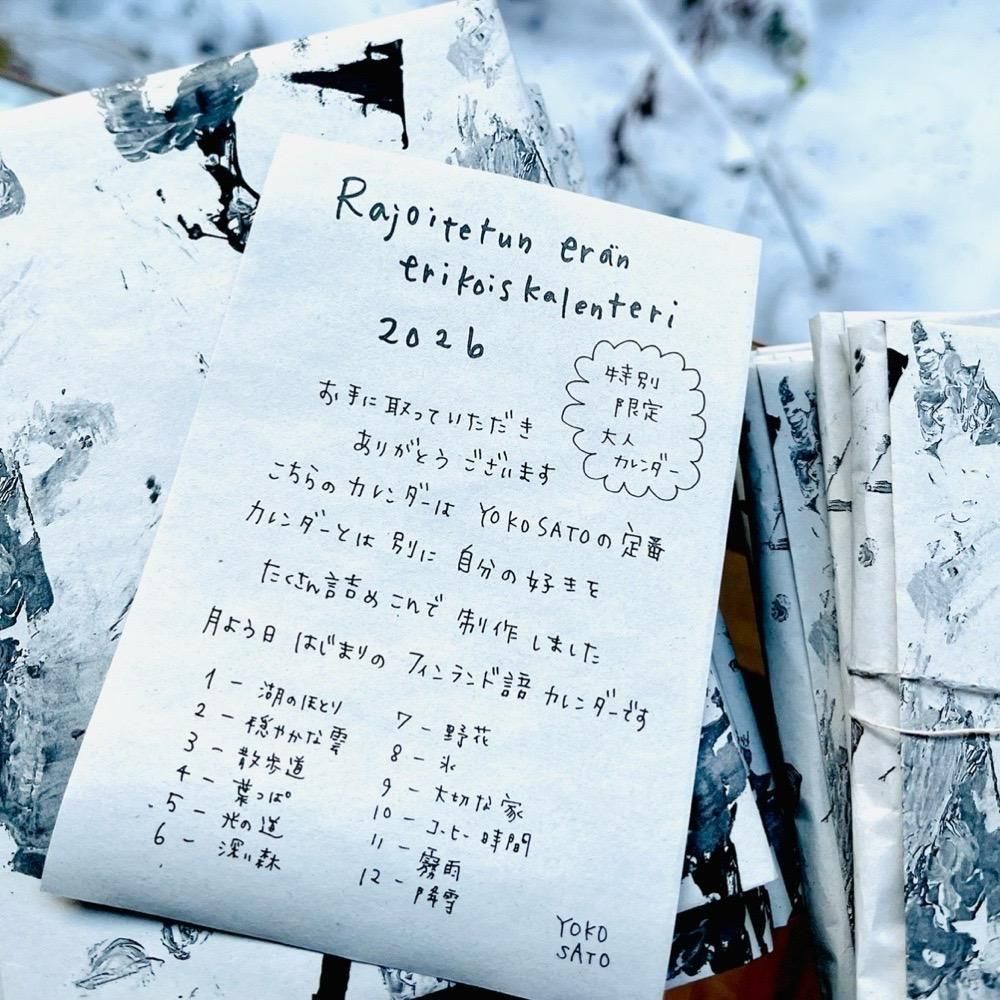 Rajoitetun erän
erikoiskalenteri
2026
特別
限定
大人
カレンダー
お手に取っていただき
ありがとうございます
こちらのカレンダーは YOKO SATOの定番
カレンダーとは別に 自分の好きを
たくさん詰めこんで 制作しました
月よう日 はじまりの フィンランド語 カレンダーです
1 - 湖のほとり
2 - 穏やかな雲
3 - 散歩道
4 - 葉っぱ
5 - 光の道
6 - 深い森
7 - 野花
8 - 氷
9 - 大切な家
10 - コーヒー時間
11 - 霧雨
12 - 降雪
YOKO
SATO